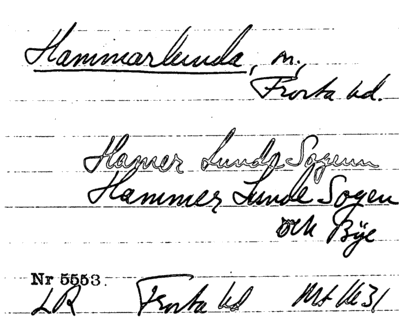 Hammarlunda, sn,
Frosta hd.
Hamer Lunde Sogenn
Hammer Lunde Sogen
och Bÿe
Nr 5553
LR Frosta hd